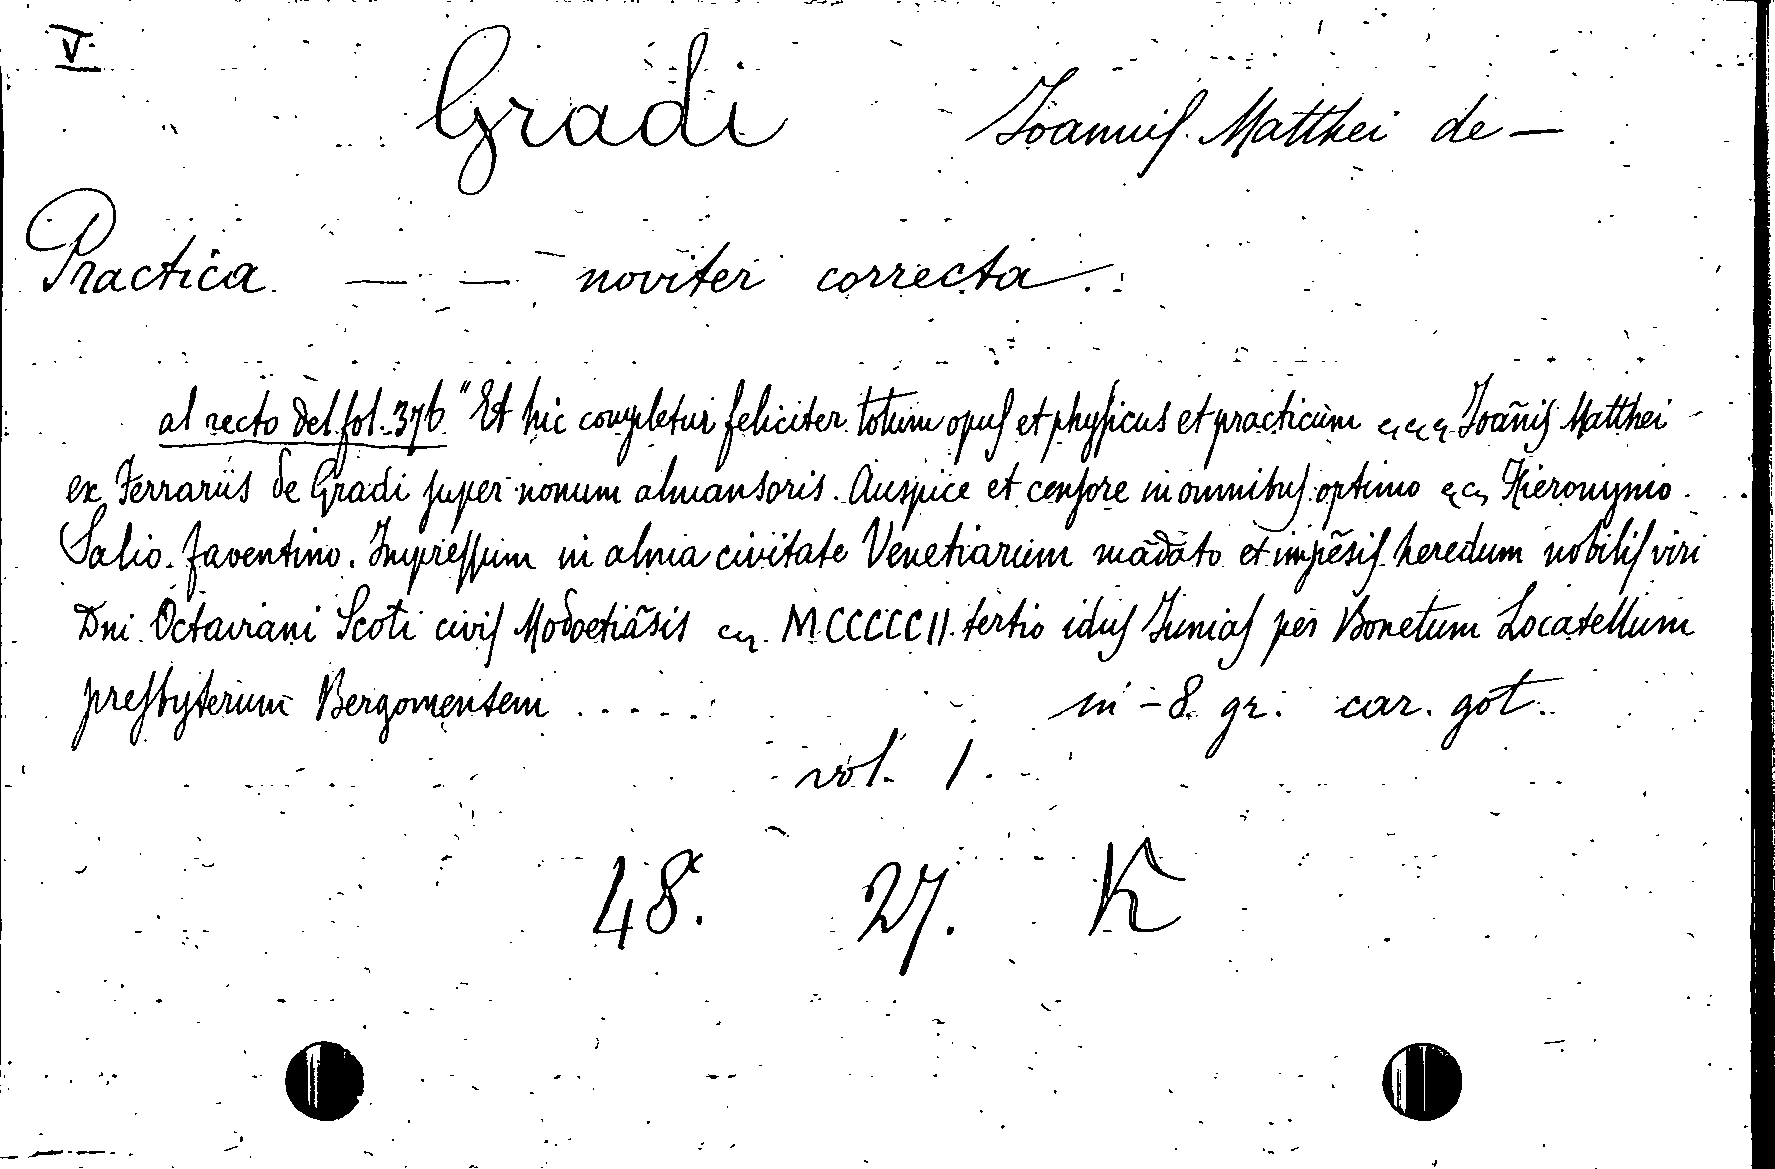 V.
Gradi Ioannis Matthei de —
Practica — — noviter correcta
al recto del fol. 376 "Et hic completur feliciter totum opus et physicus et practicum Ioañis Matthei
ex Ferrariis de Gradi super nonum almansoris. Auspice et censore in omnibus optimo Hieronymo
Salio faventino. Impressum in alma civitate Venetiarum mādāto et impēsis heredum nobilis viri
Dni Octaviani Scoti civis Modoetiāsis MCCCCCII tertio idus Iunias per Bonetum Locatellum
presbyterum Bergomensem ..... in-8. gr. car. got.
vol. 1.
48. 27. K